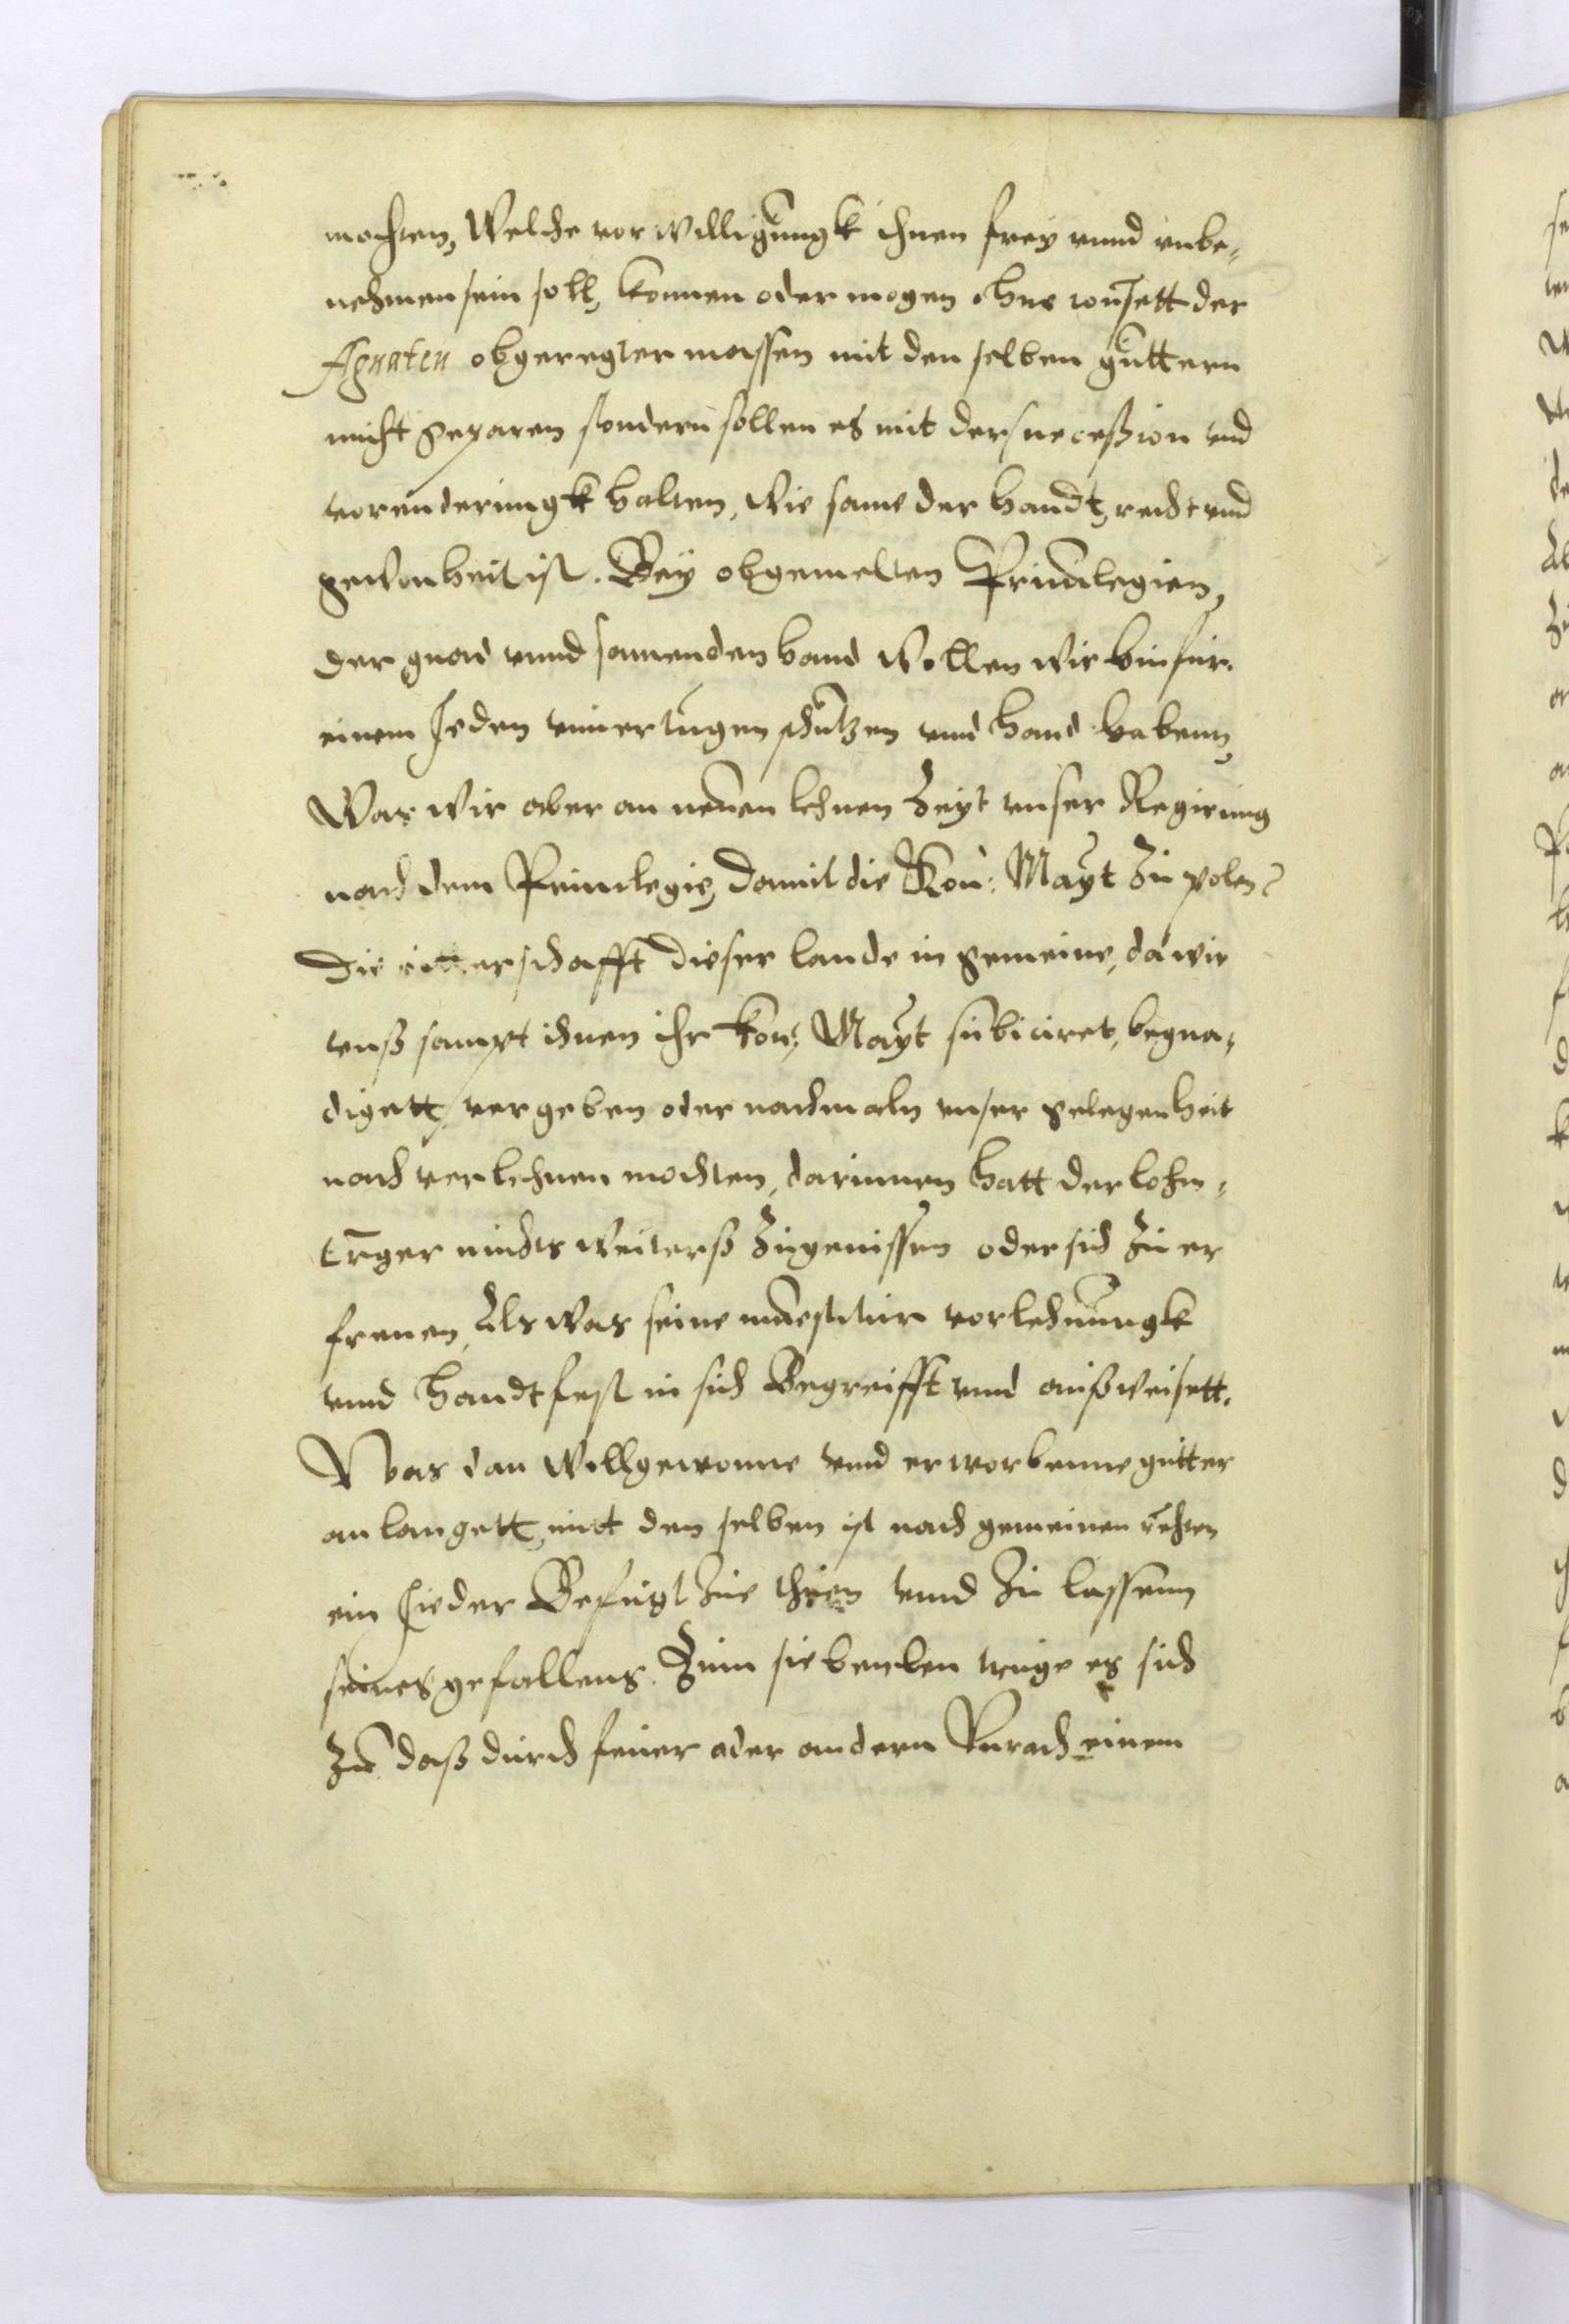 mochten, Welche vorwilligungk ihnen frey vnnd vnbe-
nohmen sein soll, konnen oder mogen ohne consett der
Agnaten obgeregter massen mit den selben guttern
nicht geparen sondern sollen es mit der succession vnd
vorenderungk halten, Wie same der handt, recht vnd
gewonheit ist. Bey obgemelten Priuilegien,
der gnad vnnd samenden hand Wollen wir hinfur
einem Jeden vnuerlugen schutzen vnnd hand habenn,
Was wir aber an neuen lehnen Zeyt vnser Regirung
nach dem Priuilegie, damit die Kon: Mayt zu polen
Die ritterschafft dieser lande in gemeine, da wir
vnß sampt ihnen ihr Kon: Mayt subiciret, begna-
digett, vergeben oder nachmaln vnser gelegenheit
nach verlehnen mochten, darinnen hatt der lehn-
treger nichts weiterß zugenissen oder sich zu er
freuen, Als was seine inuestitur vorlehnungk
vnnd handtfest in sich Begreifft vnnd außweisett.
Was dan Wollgewonne vnnd erworbenne gutter
anlangett, mit den selben ist nach gemeinen rechten
ein Jeder Befugt zue thuen vnnd zu lassenn
seines gefallens. Zum siebenden truge es sich
zu daß durch feuer oder andern Vnrad einem